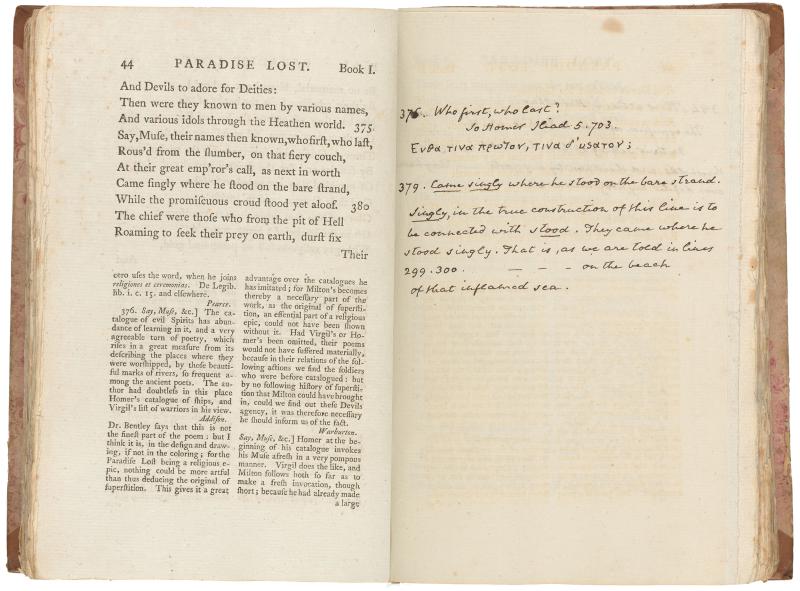 44 PARADISE LOST. Book I.
And Devils to adore for Deities:
Then were they known to men by various names,
And various idols through the Heathen world. 375
Say, Muſe, their names then known, who firſt, who laſt,
Rous'd from the ſlumber, on that fiery couch,
At their great emp'ror's call, as next in worth
Came ſingly where he ſtood on the bare ſtrand,
While the promiſcuous croud ſtood yet aloof. 380
The chief were thoſe who from the pit of Hell
Roaming to ſeek their prey on earth, durſt fix
Their
cero uſes the word, when he joins
religiones et ceremonias. De Legib.
lib. i. c. 15. and elſewhere.
Pearce.
376. Say, Muſe, &c.] The ca-
talogue of evil Spirits has abun-
dance of learning in it, and a very
agreeable turn of poetry, which
riſes in a great meaſure from its
deſcribing the places where they
were worſhipped, by thoſe beauti-
ful marks of rivers, ſo frequent a-
mong the ancient poets. The au-
thor had doubtleſs in this place
Homer's catalogue of ſhips, and
Virgil's liſt of warriors in his view.
Addiſon.
Dr. Bentley ſays that this is not
the fineſt part of the poem: but I
think it is, in the deſign and draw-
ing, if not in the coloring; for the
Paradiſe Loſt being a religious e-
pic, nothing could be more artful
than thus deducing the original of
ſuperſtition. This gives it a great
advantage over the catalogues he
has imitated; for Milton's becomes
thereby a neceſſary part of the
work, as the original of ſuperſti-
tion, an eſſential part of a religious
epic, could not have been ſhown
without it. Had Virgil's or Ho-
mer's been omitted, their poems
would not have ſuffered materially,
becauſe in their relations of the fol-
lowing actions we find the ſoldiers
who were before catalogued: but
by no following hiſtory of ſuperſti-
tion that Milton could have brought
in, could we find out theſe Devils
agency, it was therefore neceſſary
he ſhould inform us of the fact.
Warburton.
Say, Muſe, &c.] Homer at the be-
ginning of his catalogue invokes
his Muſe afreſh in a very pompous
manner. Virgil does the like, and
Milton follows both ſo far as to
make a freſh invocation, though
ſhort; becauſe he had already made
a large
376. Who first, who last?
So Homer Iliad 5. 703.
Ενθα τινα πρωτον, τινα δ' υσατον;
379. Came singly where he stood on the bare strand.
Singly, in the true construction of this line is to
be connected with stood. They came where he
stood singly. That is, as we are told in lines
299. 300. — - - on the beach
of that inflamed sea.